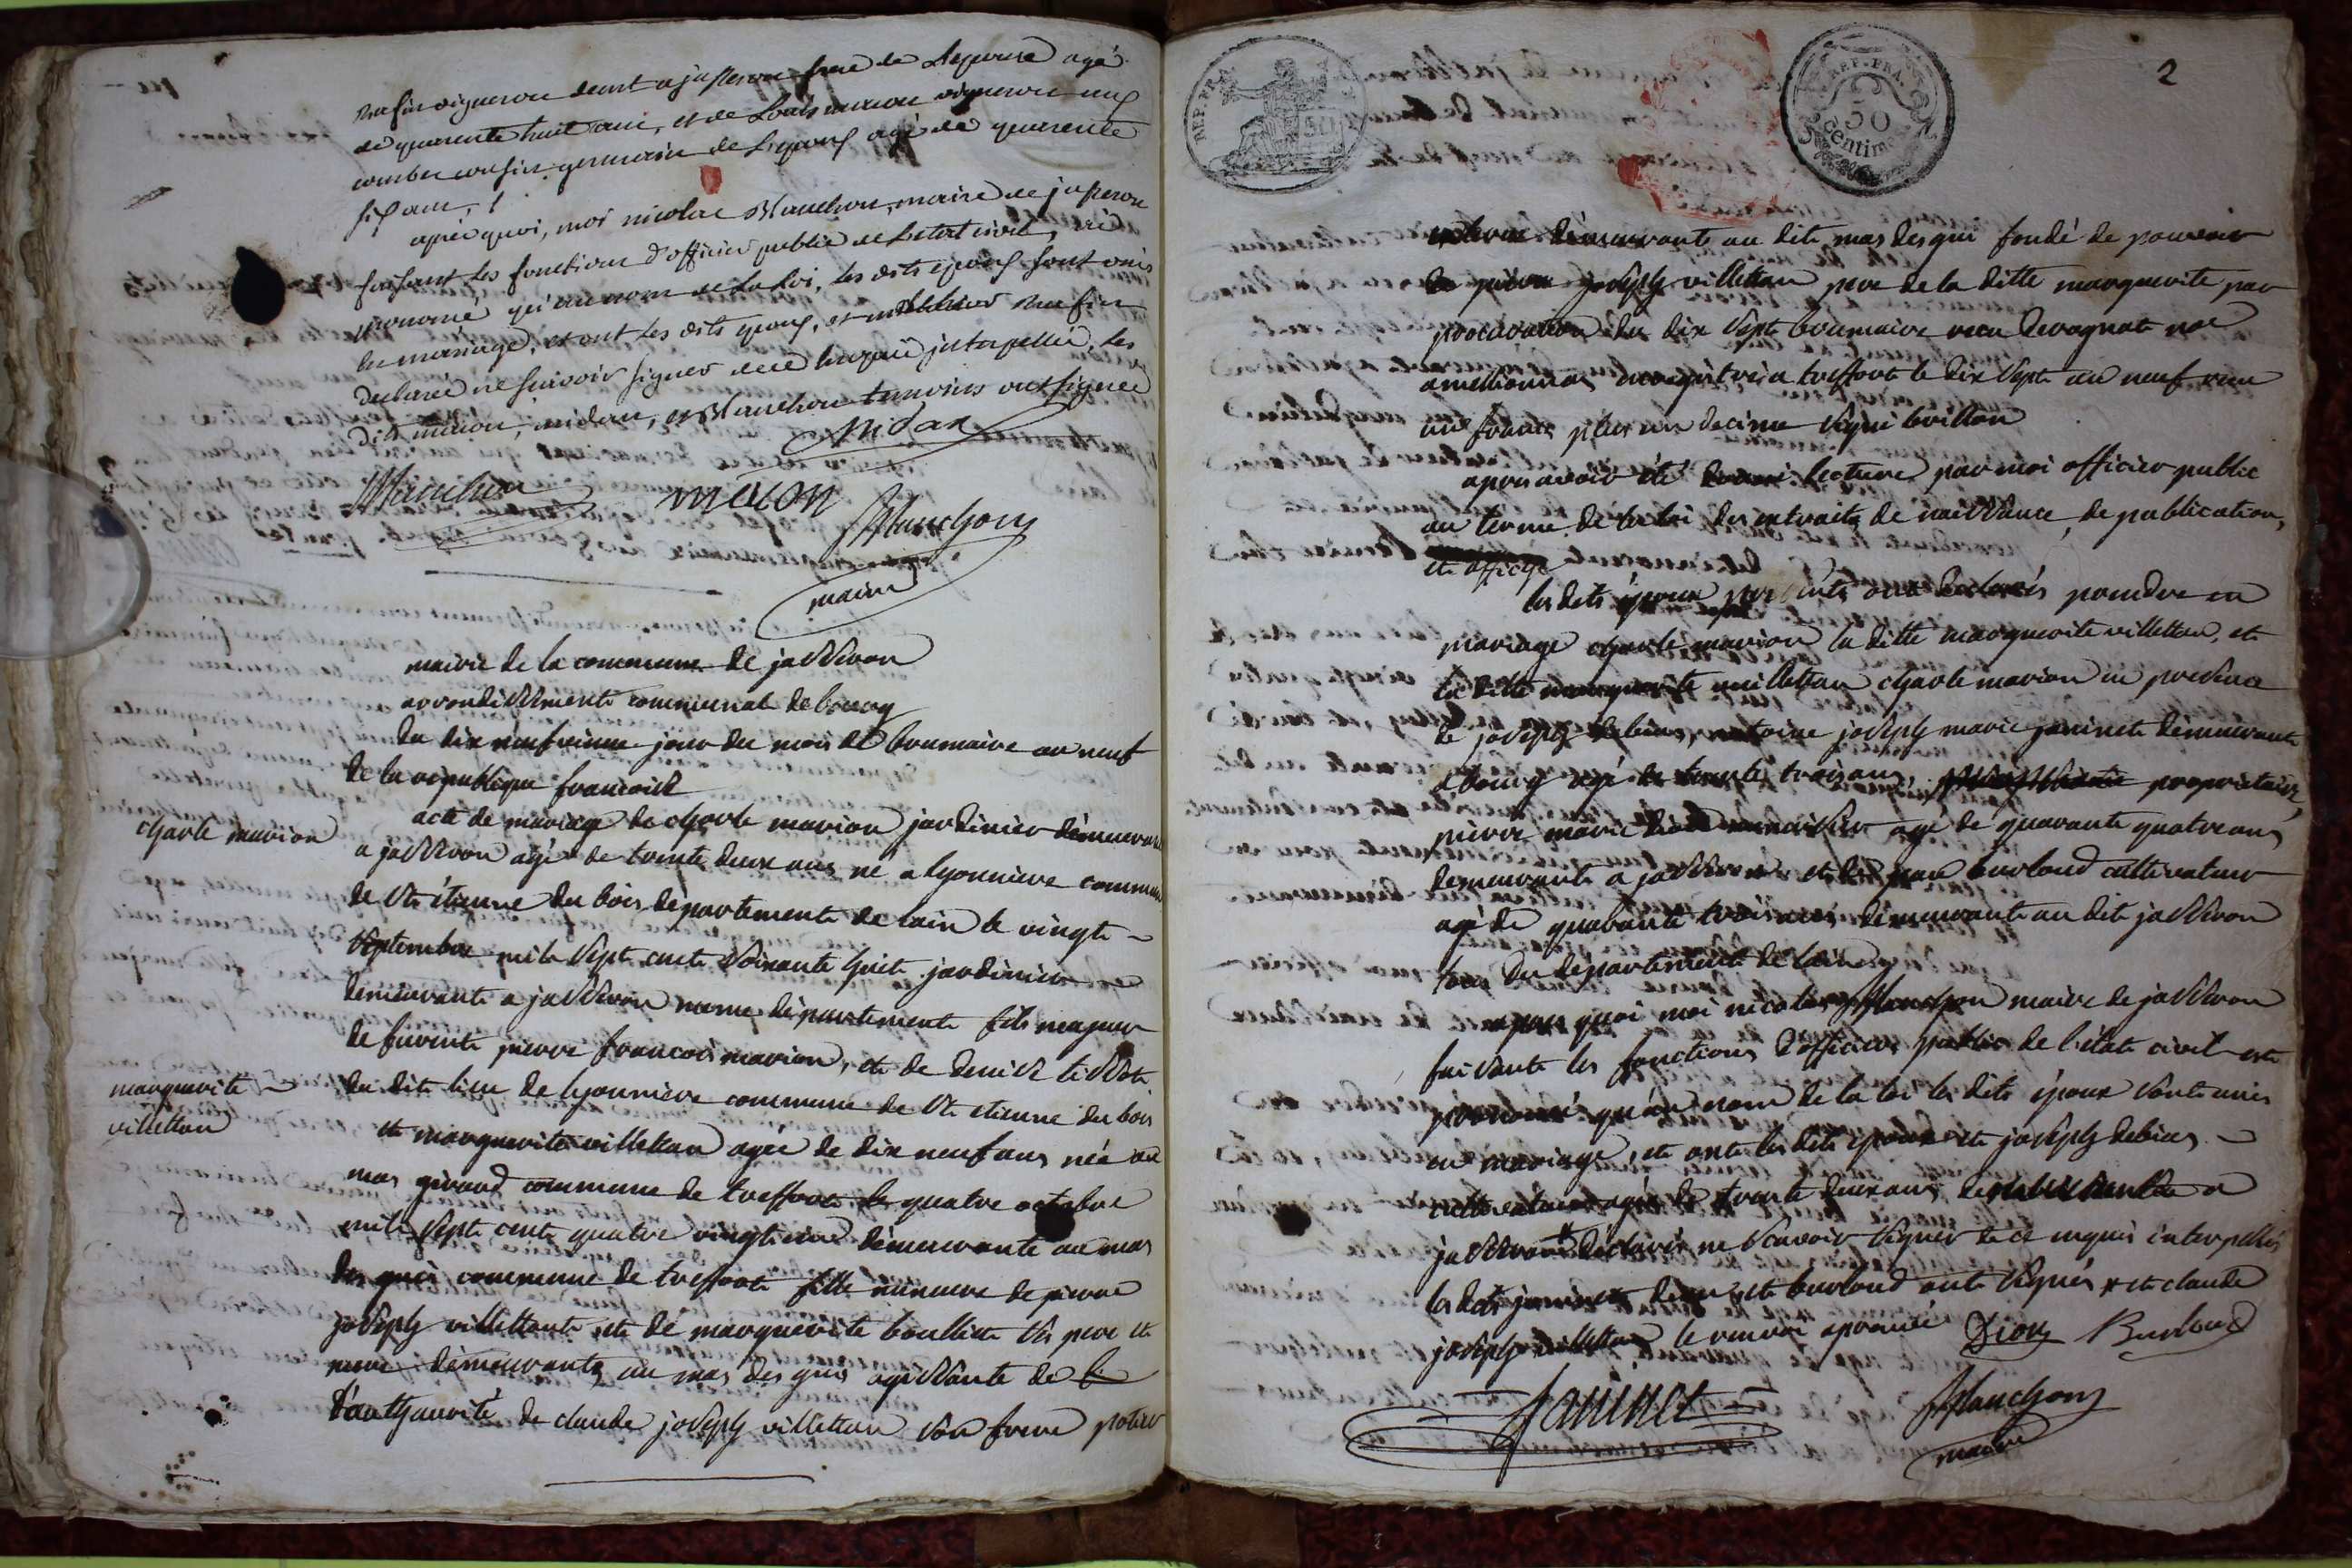 vigneron demt a jasseron frere de Lepouse agé
de quarente huit ans, et de Louis vigneron
cousin germain de agé de quarente
six ans,
apres quoi, moi nicolas Manchon, maire de jasseron
faisant les fonctions d'officier public de Letat civil, ai
prononcé qu'au nom de la loi, les dits epoux sont unis
en mariage, et ont les dits epoux, et
declaré ne scavoir signer de ce enquis interpellé, les
dits , midan, et Manchon temoins ont signés
Midan
Manchon
Manchon
maire
mairie de la commune de jasseron
arrondissement communal de bourg
du dix neufvieme jour du mois de brumaire an neuf
de la republique francoise
charle marion
acte de mariage de charle marion jardinier demeurant
a jasseron agé de trente deux ans né a lyonniere commune
de st étienne du bois département de lain le vingt
septembre mile sept cent soixante huit jardinier
demeurant a jasseron meme département fils majeur
de furent pierre francois marion, et de denise tissot
du dit lieu de lyonniere commune de st etienne du bois
marguerite
villettan
et marguerite villettan agée de dix neuf ans née au
mas giraud commune de treffort le quatre octobre
mile sept cent quatre vingt un demeurante au mas
des guis commune de treffort fille mineure de pierre
joseph villettant et de marguerite boulliet ses pere et
mere demeurants au mas des guis agissante de
l'authaurité de claude joseph villettan son frere
2
REP. FRA.
50
REP. FRA.
50
centimes
demeurant au dit mas des gui fondé de pouvoir
de pierre joseph villettan pere de la ditte marguerite par
procuration du dix sept brumaire recu not
enregistré a treffort le dix sept an neuf recu
un franc plus un decime signé brillon
apres avoir été lecture par moi officier public
au terme de la loi des extraits de naissance, de publication,
et affiche
les dits époux présents ont declarés prendre en
mariage charle marion la ditte marguerite villettan, et
la ditte marguerite villettan charle marion en presence
de joseph debias, antoine joseph marie janinet demeurant
a bourg agé de trente trois ans, propriétaire,
pierre marie agé de quarante quatre ans
demeurant a jasseron et de jean burloud cultivateur
agé de quarante trois ans demeurant au dit jasseron
tous du département de lain
apres quoi moi nicolas Manchon maire de jasseron
faisant les fonctions d'officier public de l'état civil est
prononcé qu'au nom de la loi les dits époux sont unis
en mariage, et ont les dits epoux et joseph debias
cultivateur agé de trente deux ans, a
jasseron déclarés ne scavoir signer de ce enquis interpellés
les dits janinet dion et burloud ont signés et claude
joseph villettan le renvoi aprouvé
Dion
Burloud
Janinet
Manchon
maire